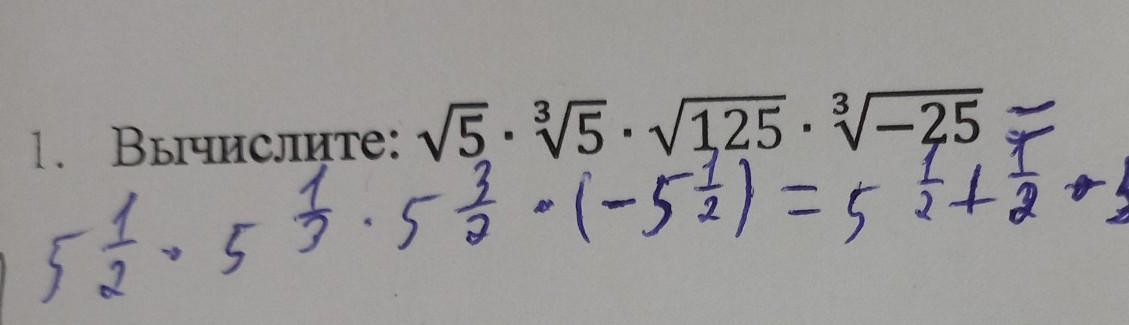 1. Вычислите: √5 · ∛5 · √125 · ∛−25 =
5^(1/2) · 5^(1/3) · 5^(3/2) · (−5^(1/2)) = 5^(1/2 + 1/2 ·